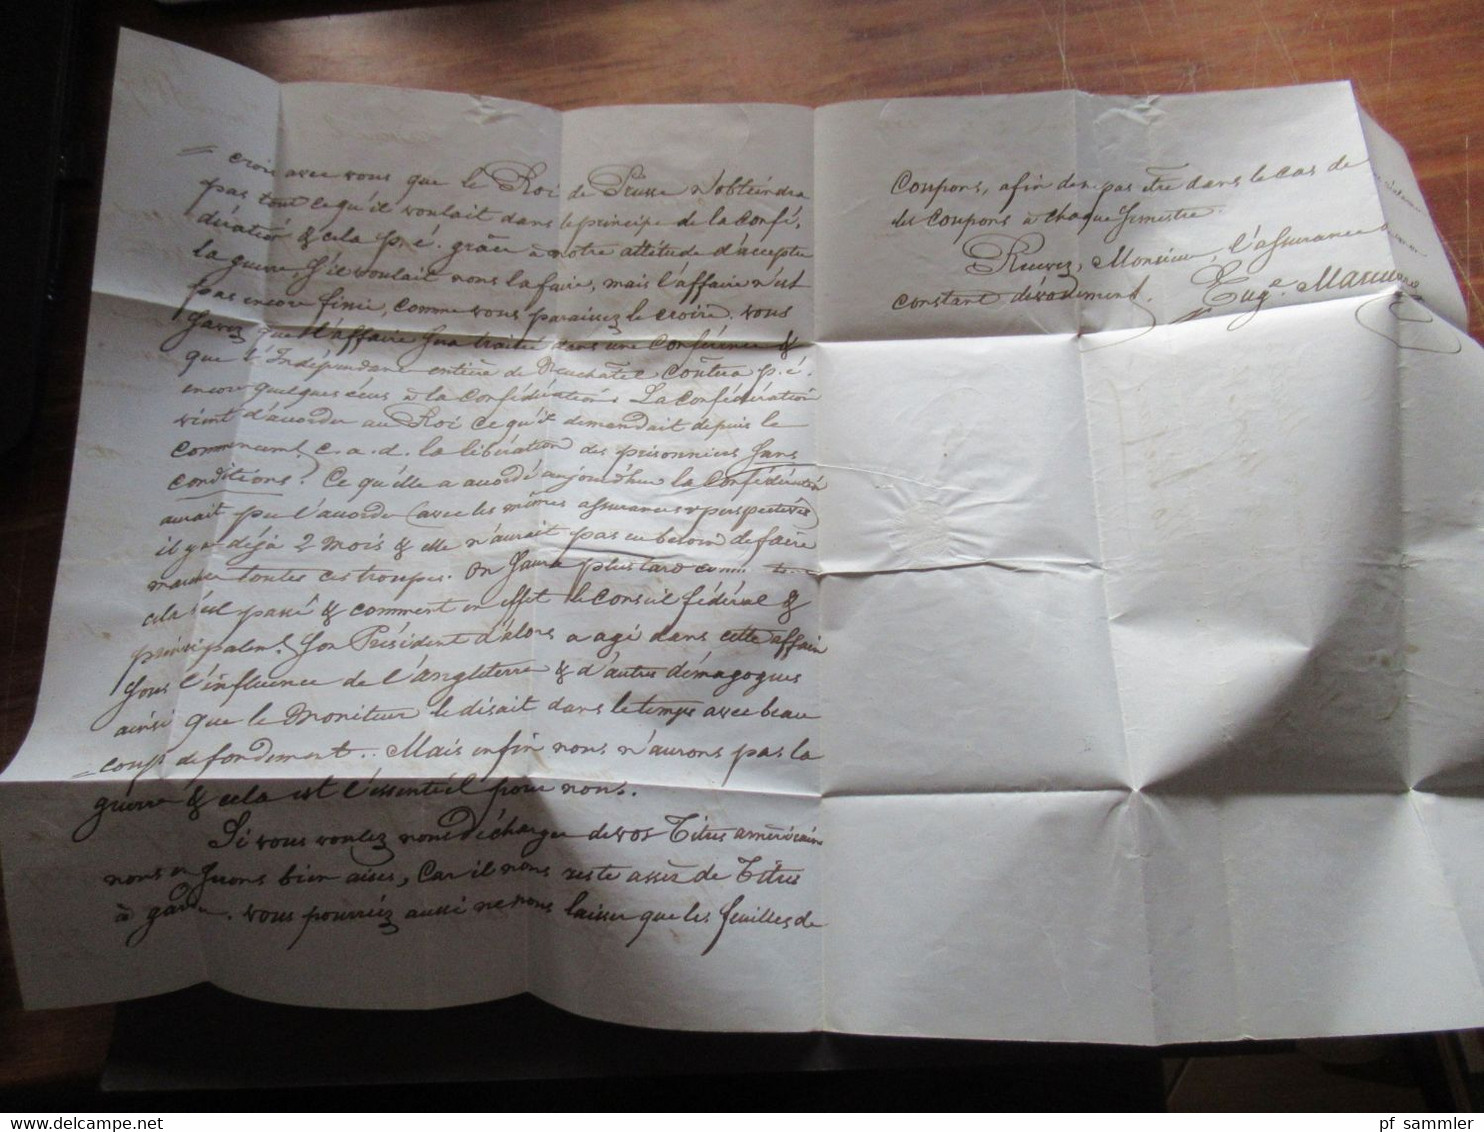 crois avec vous que le Roi de Prusse n'obtiendra
pas tout ce qu'il voulait dans le principe de la Confé,
dération & cela p.ê. grâce à notre attitude d'accepter
la guerre, s'il voulait nous la faire, mais l'affaire n'est
pas encore finie, comme vous paraissez le croire. vous
savez que l'affaire sera traitée dans une Conférence &
que l'Indépendance entière de Neuchâtel coûtera p.ê.
encore quelques écus à la Confédération. La Confédération
vient d'accorder au Roi ce qu'il demandait depuis le
commencement c.a.d. la libération des prisonniers sans
conditions. Ce qu'elle a accordé aujourd'hui la Confédération
aurait pu l'accorder (avec les mêmes assurances & perspectives)
il y a déjà 2 mois & elle n'aurait pas eu besoin de faire
marcher toutes ces troupes. On saura plus tard comment
cela s'est passé & comment en effet le Conseil fédéral &
principalent son Président d'alors a agi dans cette affaire
sous l'influence de l'angleterre & d'autres démagogues
ainsi que le Moniteur le disait dans le temps avec beau
coup de fondement. Mais enfin nous n'aurons pas la
guerre & cela est l'essentiel pour nous.
Si vous voulez nous décharger de vos Titres américains
nous en serons bien aises, Car il nous reste assez de Titres
à garder. vous pourriez aussi ne nous laisser que les feuilles de
Coupons, afin de n pas être dans le cas de
des coupons à chaque semestre.
Recevez, Monsieur, l'assurance
constant dévouement. Eug. Marcuard
pf sammler